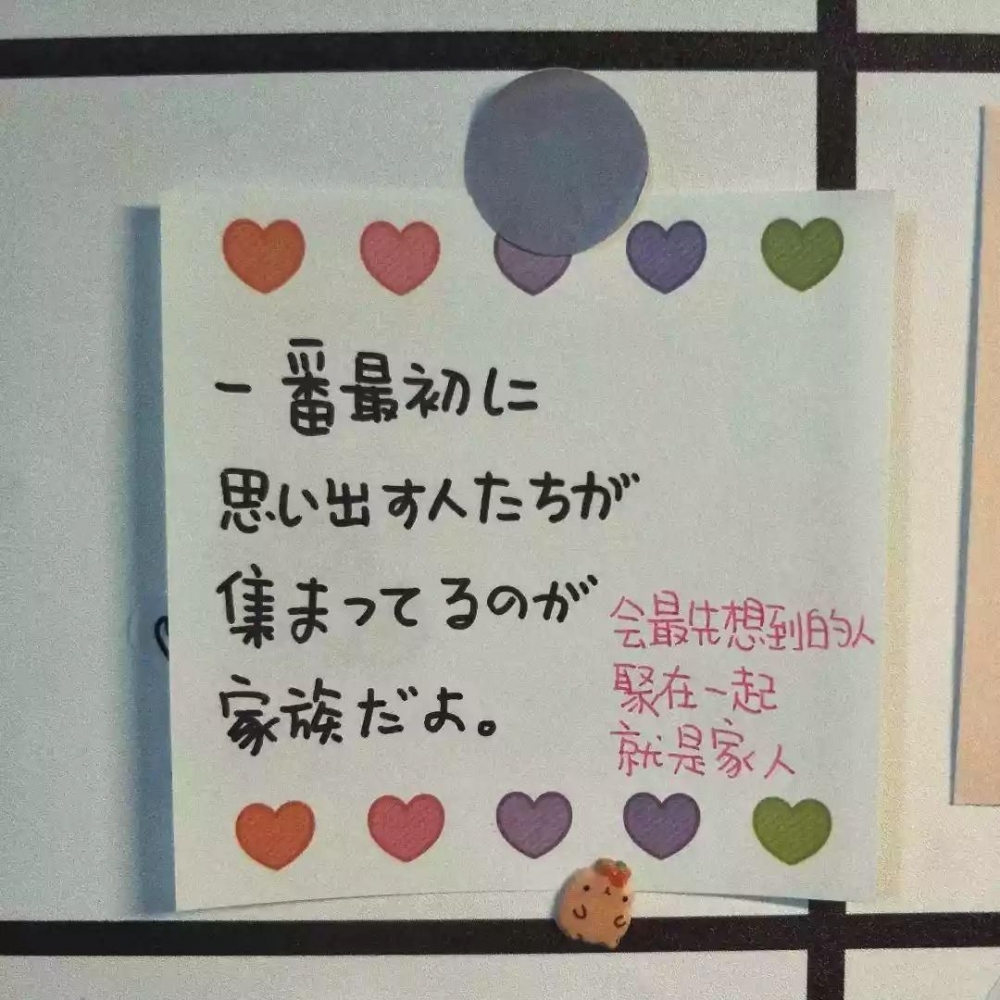 一番最初に
思い出す人たちが
集まってるのが
家族だよ。
会最先想到的人
聚在一起
就是家人